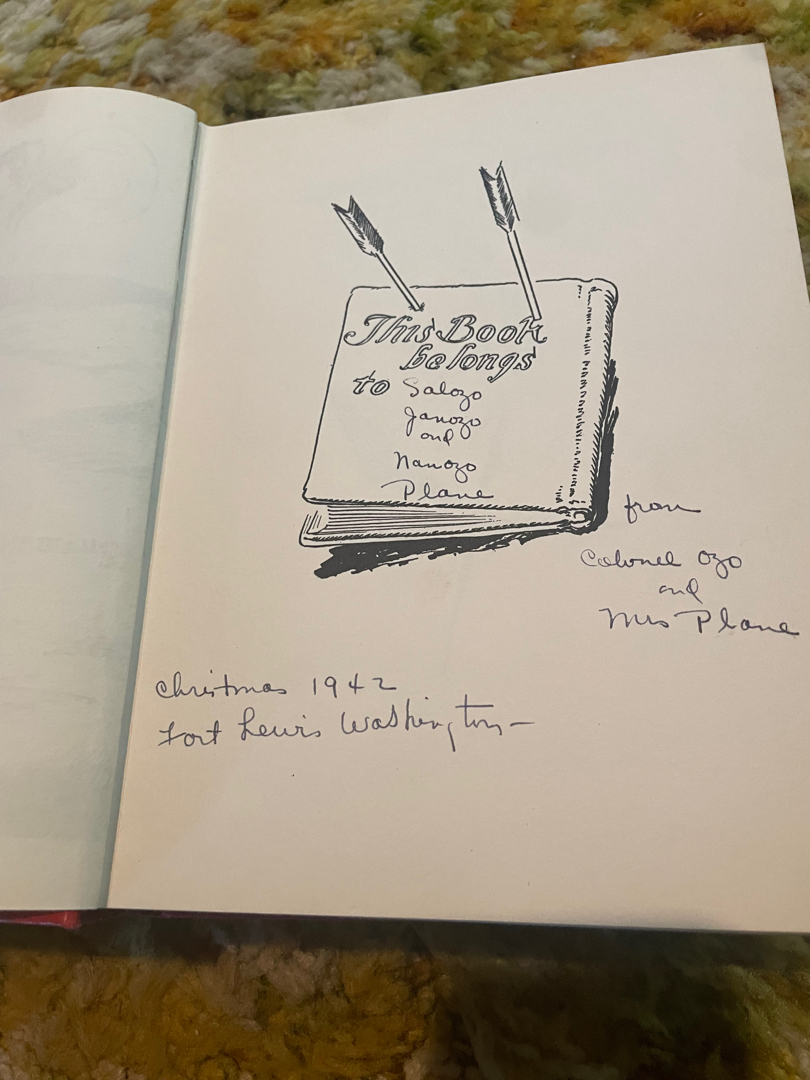 This Book
belongs
to Salozo
Janozo
and
Nanozo
Plane
from
Colonel Ozo
and
Mrs Plane
Christmas 1942
Fort Lewis Washington–